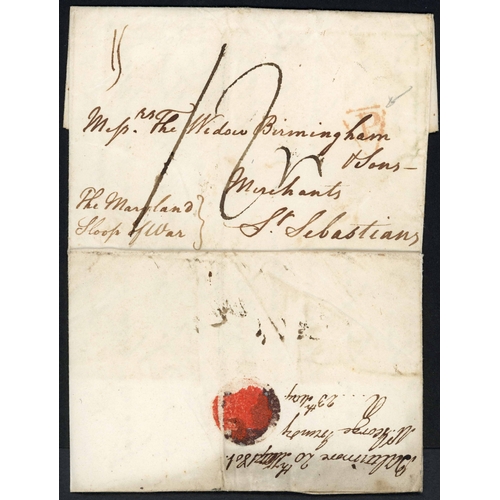 Messrs. The Widow Birmingham
& Sons
Merchants
St Sebastians
The Maryland
Sloop of War
12
Baltimore 20
George Grundy
R .... 25th